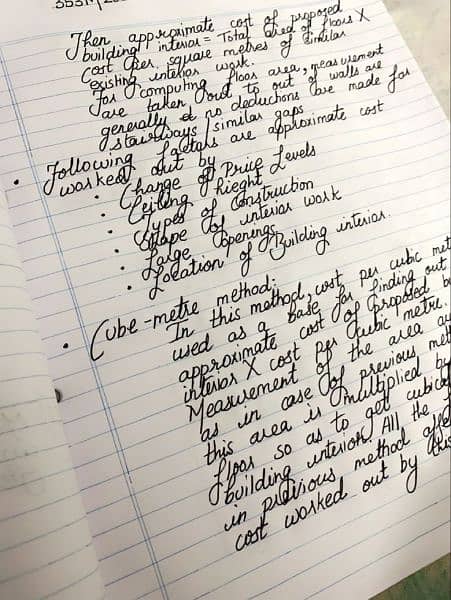 Then approximate cost of proposed
building interior = Total area of floors X
Cost per square metres of similar
existing interior work.
For computing floor area, measurement
are taken out to out of walls are
generally & no deductions are made for
stairways / similar gaps
• Following factors are approximate cost
worked out by
• Change of Price Levels
• Ceiling of Height
• Types of Construction
• Shape of interior work
• Large Openings
• Location of Building interior.
• Cube-metre method:
In this method, cost per cubic met
used as a base for finding out
approximate cost of proposed b
interior X cost per cubic metre.
Measurement of the area a
as in case of previous met
this area is multiplied by
floor so as to get cubica
building interior. All the
in previous method affe
cost worked out by this